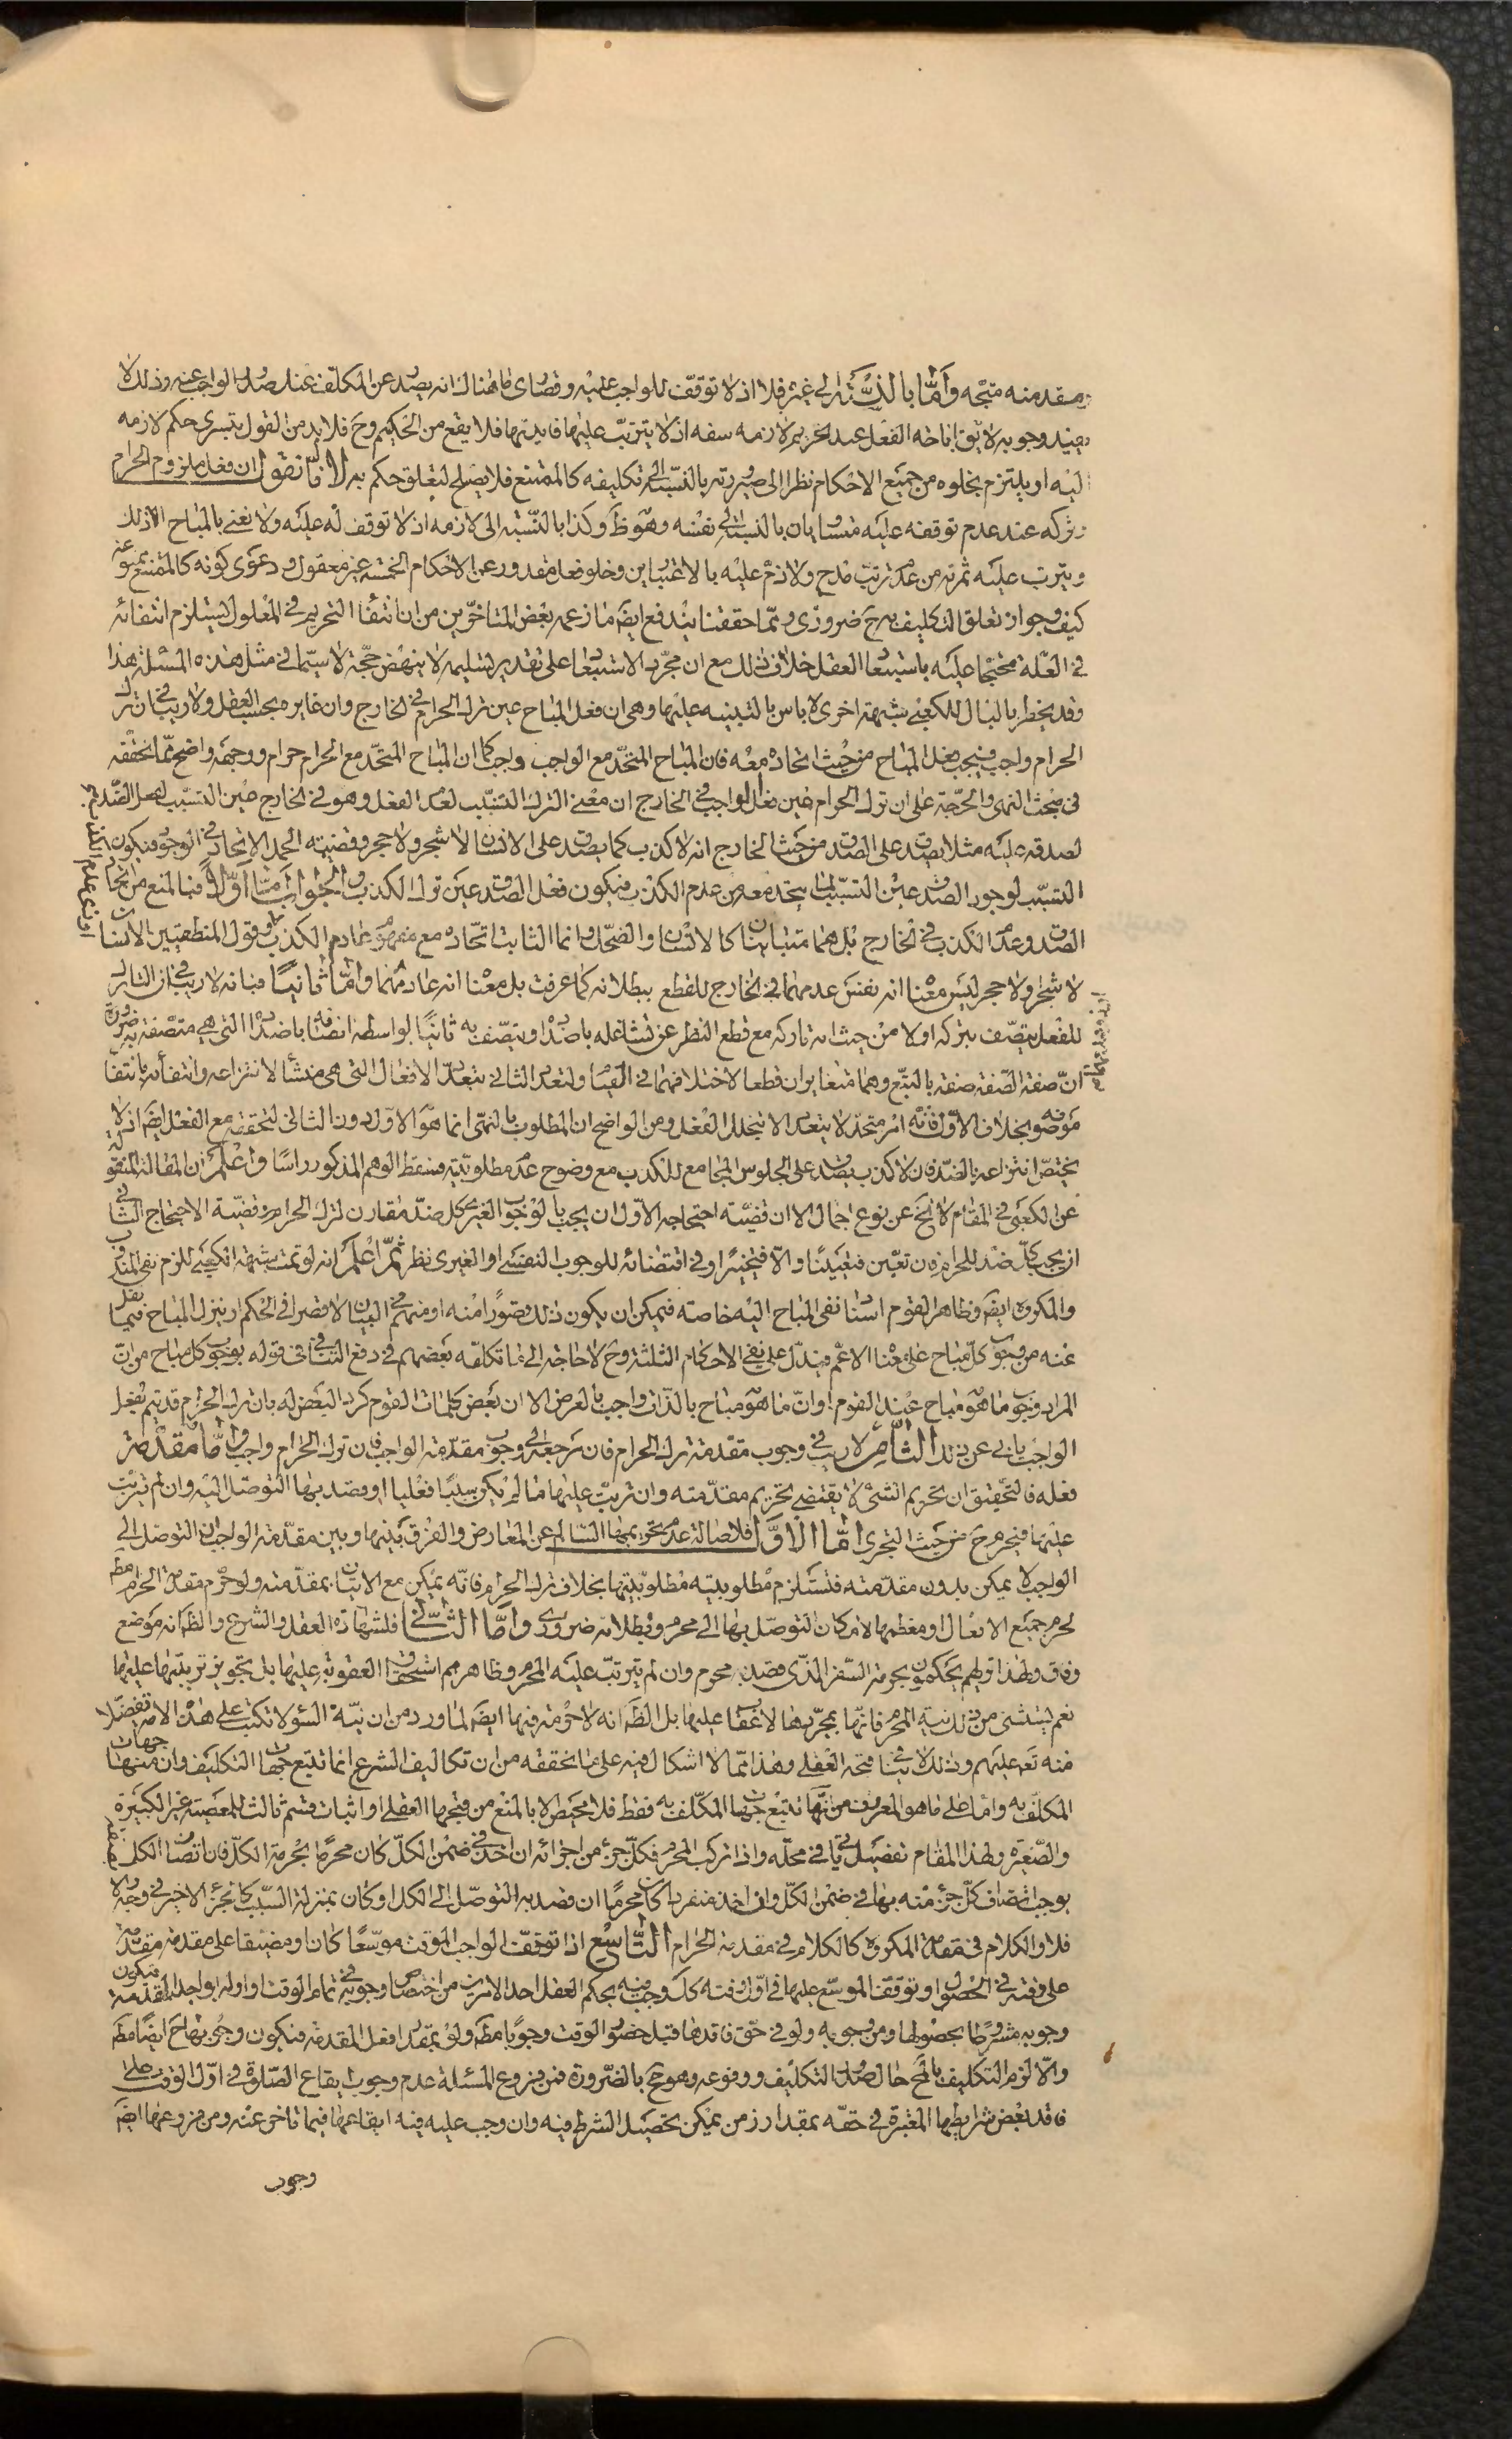 مقدمته متجه وأمّا بالنسبة إلى غيره فلا اذ لا توقف للواجب عليه وقصارى ما هناك انه يصدر عن المكلف عند صدور الواجب عنه وذلك لا
يفيد وجوبه لا يق اباحة الفعل عند تحريم لازمه سفه اذ لا يترتب عليها فايدتها فلا يقع من الحكيم وح فلا بد من القول بتسرى حكم لازمه
اليه او يلتزم بخلوه من جميع الاحكام نظرا الى صيرورته بالنسبة الى تكليفه كالممتنع فلا يصلح لتعلق حكم به لانّا نقول ان فعل ملزوم الحرام
وتركه عند عدم توقفه عليه متساويان بالنسبة الى نفسه وهو ظ وكذا بالنسبة الى لازمه اذ لا توقف له عليه ولا نعني بالمباح الا ذلك
ويترتب عليه ثمرته من عدم ترتب مدح ولا ذم عليه بالاعتبارين وخلو فعل مقدور عن الاحكام الخمسة غير معقول ودعوى كونه كالممتنع ممنوعة
كيف وجواز تعلق التكليف به ح ضرورى وممّا حققنا يندفع ايضا ما زعمه بعض المتاخرين من ان انتفاء التحريم في المعلول يستلزم انتفائه
في العلة محتجا عليه باستبعاد العقل خلاف ذلك مع ان مجرد الاستبعاد على تقدير تسليمه لا ينهض حجة لا سيّما في مثل هذه المسئلة هذا
وقد يخطر بالبال للكعبي شبهة اخرى لا باس بالتنبيه عليها وهى ان فعل المباح عين ترك الحرام في الخارج وان غايره بحسب العقل ولا ريب في ان ترك
الحرام واجب فيجب فعل المباح من حيث اتحاده معه فان المباح المتحد مع الواجب واجب كما ان المباح المتحد مع الحرام حرام ووجهه واضح ممّا نحققه
في مبحث النهى والحجة على ان ترك الحرام عين فعل الواجب في الخارج ان معنى الترك التسبّب لعدم الفعل وهو في الخارج عين التسبّب لفعل الضد
لصدقه عليه مثلا يصدق على الصدق من حيث الخارج انه لا كذب كما يصدق على الانسان لا شجر ولا حجر وقضيته الحمل الاتحاد في الوجود فيكون
التسبّب لوجود الصدق عين التسبّب لما يتحد معه من عدم الكذب فيكون فعل الصدق عين ترك الكذب والجواب امّا اوّلا فبالمنع من اتحاد
الصدق وعدم الكذب في الخارج بل هما متباينان كالانسان والضحك وانما الثابت اتحاده مع مفهوم عادم الكذب وقول المنطقيين الانسان
لا شجر ولا حجر ليس معناه انه نفس عدمهما في الخارج للقطع ببطلانه كما عرفت بل معناه انه عادمهما وامّا ثانيا فبانه لا ريب في ان التارك
للفعل يتصف بتركه اولا من حيث انه تاركه مع قطع النظر عن تشاغله باضداده ويتصف به ثانيا بواسطة اتصافه باضداده التي هي متصفة به ضرورة
انّ صفة الصفة صفة بالتبع وهما متغايران قطعا لاختلافهما في القيام ولتعدد الثاني بتعدد الافعال التي هى منشأ لانتزاعه وانتفائه بانتفاء
موصوفه بخلاف الاوّل فانّه امر متحد لا يتعدد الا بتخلل الفعل ومن الواضح ان المطلوب بالنهى انما هو الاوّل دون الثاني لتحققه مع الفعل ايضا اذ لا
يختص انتزاعه بالضد فان لا كذب يصدق على الجلوس المجامع للكذب مع وضوح عدم مطلوبيته فسقط الوهم المذكور راسًا واعلم ان المقالة المنقولة
عن الكعبي في المقام لا تخ عن نوع اجمال الا ان قضيّة احتجاجه الاوّل ان يجب بالوجوب الغيرى كل ضد مقارن لترك الحرام وقضيّة الاحتجاج الثاني
ان يجب كلّ ضد للحرام فان تعيّن فتعيينا والّا فتخييرا وفي اقتضائه للوجوب النفسى او الغيرى نظر ثمّ اعلم انه لو تمت شبهة الكعبي للزم نفى المندوب
والمكروه ايضا وظاهر القوم اسناد نفى المباح اليه خاصة فيمكن ان يكون ذلك قصورا منه او منهم في البيان لا قصرا في الحكم او ينزل المباح فيما نقل
عنه من وجوب كلّ مباح على معناه الاعم فيدلّ على نفى الاحكام الثلثة وح لا حاجة الى ما تكلفه بعضهم في دفع التنافي في قوله بوجوب كل مباح من انّ
المراد وجوب ما هو مباح عند القوم او انّ ما هو مباح بالذات واجب بالعرض الا ان بعض كلمات القوم كرد البعض له بان ترك الحرام قد يتم بفعل
الواجب يابى عن ذلك الثامن لا ريب في وجوب مقدمة ترك الحرام فان مرجعه الى وجوب مقدمة الواجب فان ترك الحرام واجب وامّا مقدمة
فعله فالتحقيق ان تحريم الشئ لا يقتضى تحريم مقدمته وان ترتب عليها ما لم يكن سببًا فعليا او قصد بها التوصّل اليه وان لم يترتب
عليها فيحرم ح من حيث التجرى امّا الاوّل فلاصالة عدم تحريمها السالم عن المعارض والفرق بينها وبين مقدمة الواجب ان التوصل الى
الواجب لا يمكن بدون مقدمته فتستلزم مطلوبيته مطلوبيتها بخلاف ترك الحرام فانه يمكن مع الاتيان بمقدمته ولو حرم مقدمة الحرام مط
لحرم جميع الافعال او معظمها لامكان التوصّل بها الى محرم وبطلانه ضرورى وامّا الثاني فلشهادة العقل والشرع والظ انه موضع
وفاق ولهذا تريهم يحكمون بحرمة السفر الذى قصد به محرم وان لم يترتب عليه المحرم وظاهرهم استحقاق العقوبة عليها بل تجويز ترتبها عليها
نعم يستثنى من ذلك نية المحرم فانها بمجردها لا عقاب عليها بل الظ انه لا حرمة فيها ايضا لما ورد من ان نيّة السوء لا تكتب على هذه الامة تفضلا
منه تعه عليهم وذلك لا ينافي قبحه العقلى وهذا ممّا لا اشكال فيه على ما نحققه من ان تكاليف الشرع انما تتبع جهات التكليف وان منها جهات
المكلف به وامّا على ما هو المعروف من انّها تتبع جهات المكلف به فقط فلا محيص الا بالمنع من قبحها العقلى او اثبات قسم ثالث للمعصية غير الكبيرة
والصغيرة ولهذا المقام تفصيل ياتي في محله واذا تركب المحرم فكلّ جزء من اجزائه ان اخذ في ضمن الكلّ كان محرمًا بحرمة الكلّ فان اتصاف الكل بها
يوجب اتصاف كلّ جزء منه بها في ضمن الكلّ وان اخذ منفردا كان محرمًا ان قصد به التوصّل الى الكل او كان بمنزلة السبب كالجزء الاخير في وجه والا
فلا والكلام في مقدمة المكروه كالكلام في مقدمة الحرام التّاسع اذا توقف الواجب الموقت موسّعا كان او مضيقا على مقدمة مقدمة
على وقته في الحصول او توقف الموسّع عليها في اوّل وقته كك وجب فيه بحكم العقل احد الامرين من اختصاص وجوبه في تمام الوقت او اوله بواجد المقدمة فيكون
وجوبه مشروطا بحصولها ومن وجوبه ولو في حق فاقدها قبل حضور الوقت وجوبا مط ولو بتقدير فعل المقدمة فيكون وجوبها ح ايضا مط
والّا لزم التكليف بالمح حال صدور التكليف ووقوعه وهو مح بالضرورة فمن فروع المسئلة عدم وجوب ايقاع الصّلوة في اوّل الوقت على
فاقد بعض شرايطها المعتبرة في حقه بمقدار زمن يمكن تحصيل الشرط فيه وان وجب عليه فيه ايقاعها فيما تاخر عنه ومن فروعها ايضا
وجوب